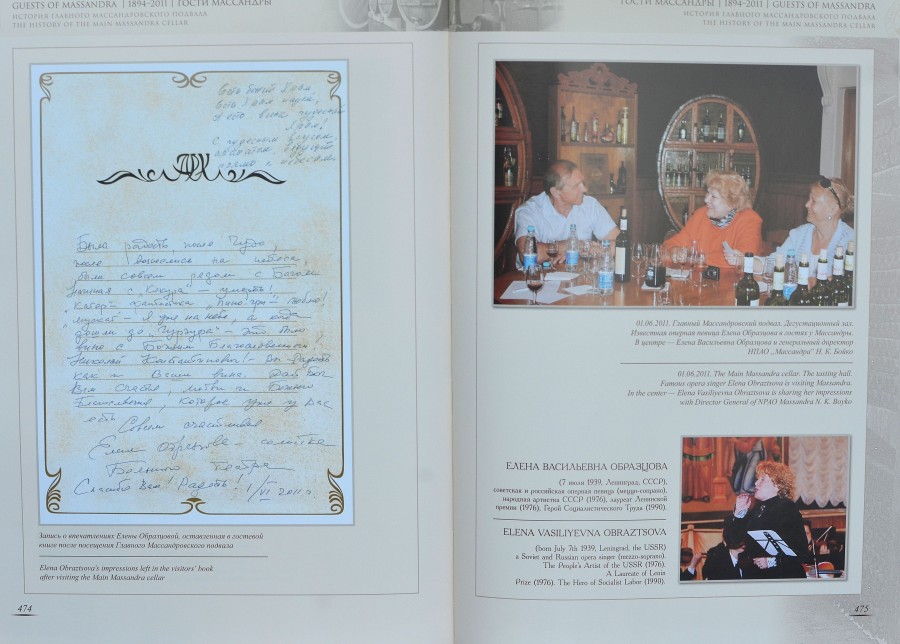 GUESTS OF MASSANDRA | 1894–2011 | ГОСТИ МАССАНДРЫ
ИСТОРИЯ ГЛАВНОГО МАССАНДРОВСКОГО ПОДВАЛА
THE HISTORY OF THE MAIN MASSANDRA CELLAR
Есть
Есть
И есть вина
С
Была радость, после Чудо,
после вознеслись на небеса,
были совсем рядом с Богом
Начиная с "Кокура" – умерла!
"Кагор" –
"мускат" – Я уже на небе, а когда
дошли до "Гурзуфа" – это
вино с Божьим Благословением!
Николай Константинович! – Вы радость
как и Ваши вина. Дай Бог
Вам счастья, любви и Божьего
Благословения, которое уже у Вас
есть
Совсем счастливая
Елена Образцова – солистка
Большого театра
Спасибо Вам! Радость! 1/VI 2011 г.
Запись о впечатлениях Елены Образцовой, оставленная в гостевой
книге после посещения Главного Массандровского подвала
Elena Obraztsova's impressions left in the visitors' book
after visiting the Main Massandra cellar
474
ГОСТИ МАССАНДРЫ | 1894–2011 | GUESTS OF MASSANDRA
ИСТОРИЯ ГЛАВНОГО МАССАНДРОВСКОГО ПОДВАЛА
THE HISTORY OF THE MAIN MASSANDRA CELLAR
01.06.2011. Главный Массандровский подвал. Дегустационный зал.
Известная оперная певица Елена Образцова в гостях у Массандры.
В центре — Елена Васильевна Образцова и генеральный директор
НПАО „Массандра" Н. К. Бойко
01.06.2011. The Main Massandra cellar. The tasting hall.
Famous opera singer Elena Obraztsova is visiting Massandra.
In the center — Elena Vasiliyevna Obraztsova is sharing her impressions
with Director General of NPAO Massandra N. K. Boyko
ЕЛЕНА ВАСИЛЬЕВНА ОБРАЗЦОВА
(7 июля 1939, Ленинград, СССР),
советская и российская оперная певица (меццо-сопрано),
народная артистка СССР (1976), лауреат Ленинской
премии (1976), Герой Социалистического Труда (1990).
ELENA VASILIYEVNA OBRAZTSOVA
(born July 7th 1939, Leningrad, the USSR)
a Soviet and Russian opera singer (mezzo-soprano).
The People's Artist of the USSR (1976).
A Laureate of Lenin
Prize (1976). The Hero of Socialist Labor (1990).
475